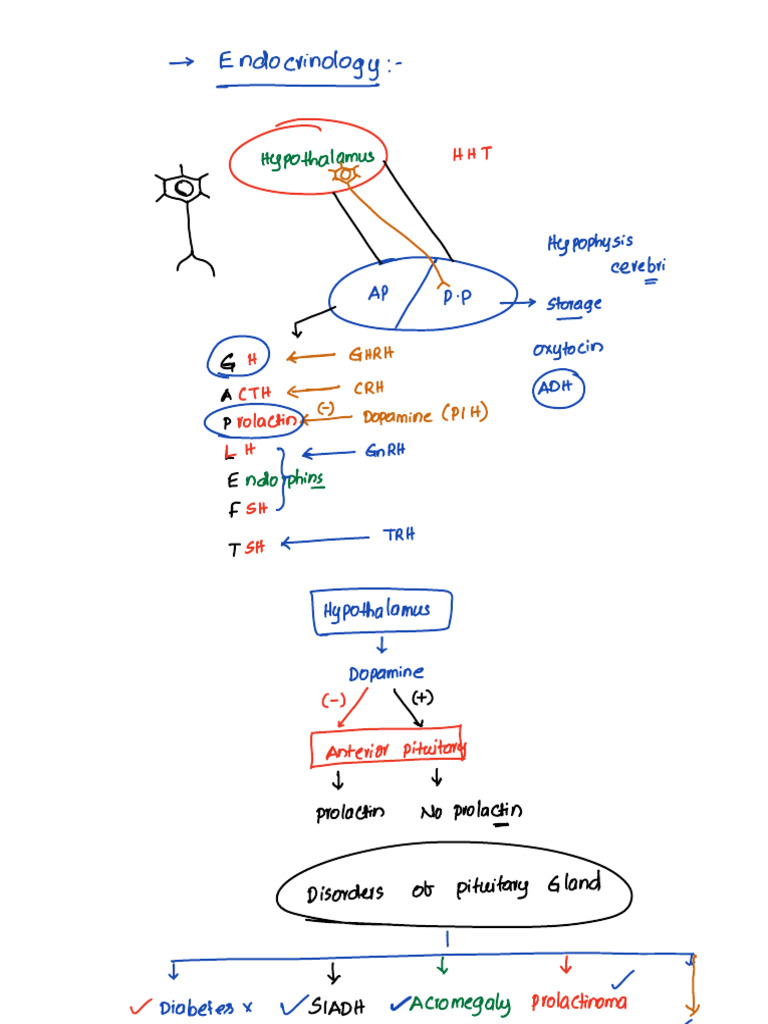 → Endocrinology :-
Hypothalamus
HHT
Hypophysis
cerebri
AP
P.P
→ Storage
oxytocin
ADH
GH ← GHRH
ACTH ← CRH
Prolactin (-) ← Dopamine (PIH)
LH ← GnRH
Endorphins
FSH
TSH ← TRH
Hypothalamus
↓
Dopamine
(-) (+)
Anterior pituitary
↓ ↓
Prolactin No prolactin
Disorders of pituitary Gland
✓ Diabetes x ✓ SIADH ✓ Acromegaly Prolactinoma ✓